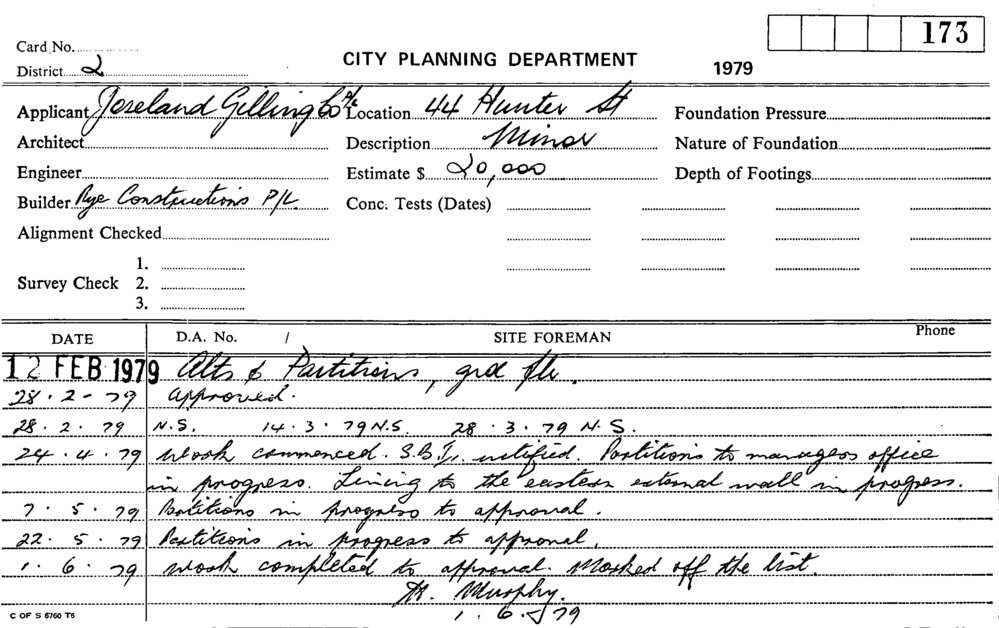 173
Card No.
CITY PLANNING DEPARTMENT
District 2
1979
Applicant Joseland Gilling Location 44 Hunter St Foundation Pressure
Architect Description Minor Nature of Foundation
Engineer Estimate $ 20,000 Depth of Footings
Builder Rye Constructions P/L Conc. Tests (Dates)
Alignment Checked
1.
Survey Check 2.
3.
DATE D.A. No. / SITE FOREMAN Phone
12 FEB 1979 Alts & Partitions, grd flr.
28.2-79 Approved.
28.2.79 N.S. 14.3.79 N.S. 28.3.79 N.S.
24.4.79 Work commenced. notified. Partitions to managers office
in progress. Lining to the eastern external wall in progress.
7.5.79 Partitions in progress to approval.
22.5.79 Partitions in progress to approval.
1.6.79 Work completed to approval. Marked off the list.
Murphy.
1.6.79
C OF S 6760 T5